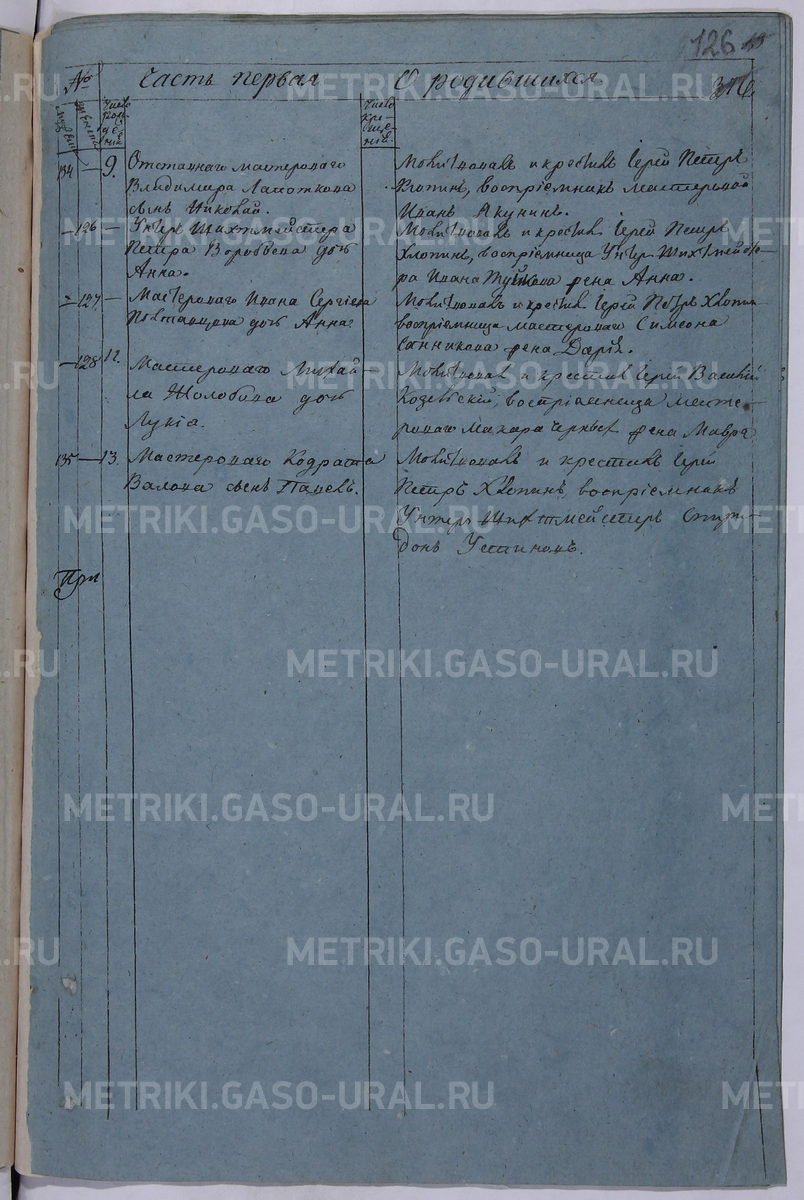 126
№ Часть первая О родившихся
Число рождений
Число крещений
134 — 9. Отставнаго мастероваго
Владимира
сынъ Николай.
Молитвовалъ и крестилъ Іерей Петръ
Хлопинъ, воспріемникъ мастеровой
Иванъ Якунинъ.
— 126 — Унтеръ Шихтмейстера
Петра Воробьева дочь
Анна.
Молитвовалъ и крестилъ Іерей Петръ
Хлопинъ, воспріемница Унтеръ Шихтмейсте-
ра Ивана жена Анна.
— 127 — Мастероваго Ивана Сергіева
дочь Анна
Молитвовалъ и крестилъ Іерей Петръ Хлопинъ
воспріемница мастероваго Симеона
Санникова жена Дарія.
— 128 12. Мастероваго Михай-
ла Шолобова дочь
Лукіа.
Молитвовалъ и крестилъ Іерей Василій
воспріемница масте-
роваго Макара жена Мавра
135 — 13. Мастероваго Кодрата
Валова сынъ Павелъ.
Молитвовалъ и крестилъ Іерей
Петръ Хлопинъ, воспріемникъ
Унтеръ Шихтмейстеръ Спири-
донъ Устиновъ.
При
METRIKI.GASO-URAL.RU